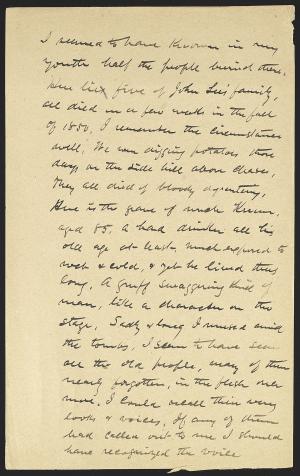 I seemed to have known in my
youth half the people buried there.
Here lie five of John family,
all died in a few weeks in the fall
of 1850, I remember the circumstance
well; We were digging potatoes those
days on the side hill above
They all died of bloody dysentery,
Here is the grave of uncle
aged 85, a hard drinker all his
old age at least, much exposed to
wet & cold, & yet he lived thus
long. A gruff swaggering kind of
man, like a character on the
stage, Sadly & long I mused amid
the tombs, I seem to have seen
all the old people, many of them
nearly forgotten, in the flesh once
more, I could recall their very
looks & voices, If any of them
had called out to me I should
have recognized the voice